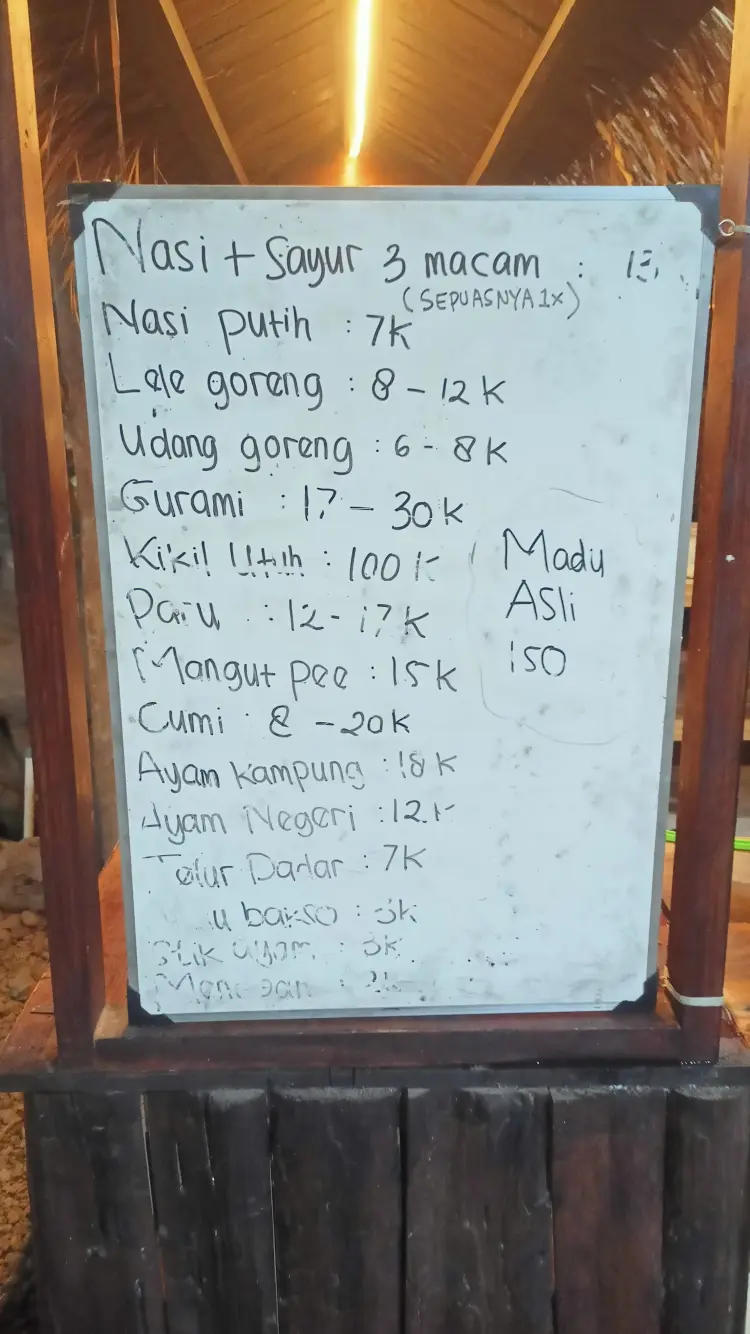 Nasi + Sayur 3 macam :
(SEPUASNYA 1x)
Nasi putih : 7K
Lele goreng : 8 - 12 K
Udang goreng : 6 - 8K
Gurami : 17 - 30 K
Kikil Utuh : 100 K
Paru : 12 - 17K
Mangut pee : 15K
Cumi : 8 - 20K
Ayam kampung : 18K
Ayam Negeri : 12K
Telur Dadar : 7K
bakso : 3K
ayam : 3K
Madu
Asli
150